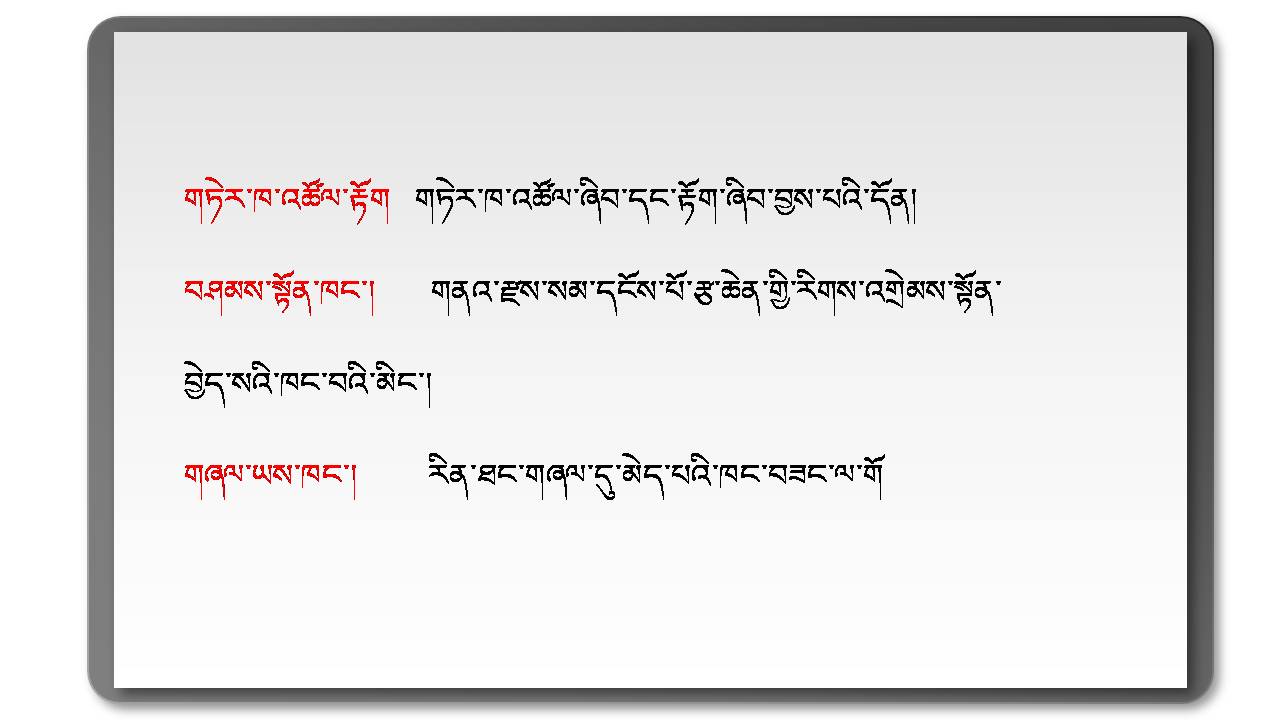 གཏེར་ཁ་འཚོལ་རྟོག གཏེར་ཁ་འཚོལ་ཞིབ་དང་རྟོག་ཞིབ་བྱས་པའི་དོན།
བཤམས་སྟོན་ཁང་། གནའ་རྫས་སམ་དངོས་པོ་རྩ་ཆེན་གྱི་རིགས་འགྲེམས་སྟོན་
བྱེད་སའི་ཁང་བའི་མིང་།
གཞལ་ཡས་ཁང་། རིན་ཐང་གཞལ་དུ་མེད་པའི་ཁང་བཟང་ལ་གོ